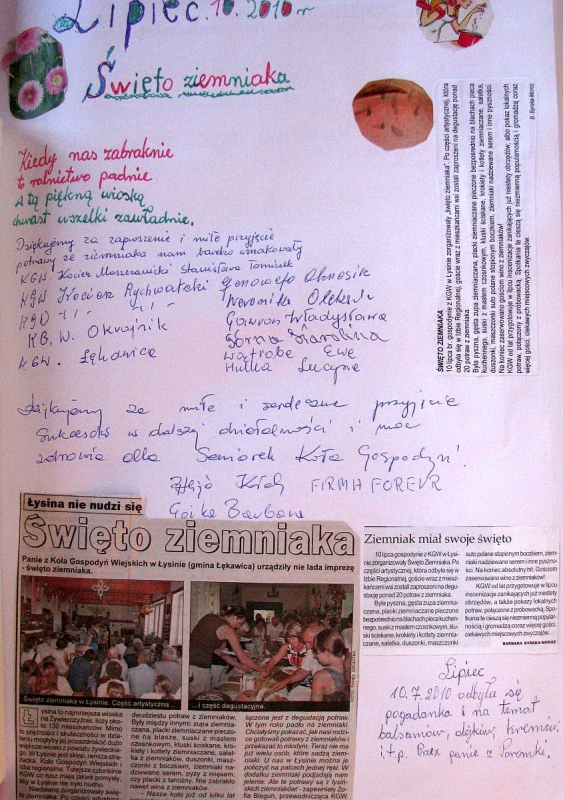 Lipiec.10.2010 r
Święto ziemniaka
Kiedy nas zabraknie
to rolnictwo padnie
A tą piękną wioską
chwast wszelki zawładnie.
Dziękujemy za zaproszenie i miłe przyjęcie
potrawy ze ziemniaka nam bardzo smakowały
KGW Kocierz Moszczanicki Stanisława Tomiak
KGW Kocierz Rychwałdzki Genowefa
KGW -11- -11- Weronika
K.G.W. Okrajnik Gawron Władysława
Górna Karolina
KGW. Łękawica Wątroba Ewa
Hulka Lucyna
Dziękujemy za miłe i serdeczne przyjęcie
Sukcesów w dalszej działalności i moc
zdrowia dla Seniorek Koła Gospodyń!
FIRMA FOREVR
Barbara
ŚWIĘTO ZIEMNIAKA
10 lipca br. gospodynie z KGW w Łysinie zorganizowały „święto ziemniaka". Po części artystycznej, która
odbyła się w Izbie Regionalnej, goście wraz z mieszkańcami wsi zostali zaproszeni na degustację ponad
20 potraw z ziemniaka.
Była pyszna, gęsta zupa ziemniaczana, placki ziemniaczane pieczone bezpośrednio na blachach pieca
kuchennego, suski z masłem czosnkowym, kluski ściskane, krokiety i kotlety ziemniaczane, sałatka,
duszonki, maszczonki suto polane stopionym boczkiem, ziemniaki nadziewane serem i inne pyszności.
Na koniec zaserwowano gościom wino z ziemniaków!
KGW od lat przygotowuje w lipcu inscenizacje zanikających już niestety obrzędów, albo pokaz lokalnych
potraw, połączony z próbowaniem. Spotkania te cieszą się niezmienną popularnością i gromadzą coraz
więcej gości, ciekawych miejscowych zwyczajów.
D. Byrska-Moroz
Łysina nie nudzi się
Święto ziemniaka
Panie z Koła Gospodyń Wiejskich w Łysinie (gmina Łękawica) urządziły nie lada imprezę
- święto ziemniaka.
Święto ziemniaka w Łysinie. Część artystyczna...
...i część degustacyjna.
Łysina to najmniejsza wioska
na Żywiecczyźnie, liczy oko-
ło 130 mieszkańców. Mimo
to prężności i skuteczności w dzia-
łaniu mogłyby jej pozazdrościć dużo
większe wioski z powiatu żywieckie-
go. W Łysinie jest sklep, remiza stra-
żacka, Koło Gospodyń Wiejskich i
izba regionalna. Tutejsze członkinie
KGW co rusz mają jakieś pomysły,
aby w Łysinie nie było nudno.
Niedawno zorganizowały święto
ziemniaka. Po części artystycznej
dwudziestu potraw z ziemniaków.
Były między innymi: zupa ziemnia-
czana, placki ziemniaczane pieczo-
ne na blasze, suski z masłem
czosnkowym, kluski ściskane, kro-
kiety i kotlety ziemniaczane, sałat-
ka z ziemniaków, duszonki, masz-
czonki z boczkiem, ziemniaki na-
dziewane serem, pyzy z mięsem,
czy placki z tarciny. Nie zabrakło
nawet wina z ziemniaków.
- Nasze koło już od kilku lat
łączone jest z degustacją potraw.
W tym roku padło na ziemniaki.
Chciałyśmy pokazać, jak nasi rodzi-
ce gotowali potrawy z ziemniaków i
przekazać to młodym. Teraz nie ma
już wielu osób, które sadzą ziem-
niaki. U nas w Łysinie można je
policzyć na palcach jednej ręki. W
dodatku ziemniaki podjadają nam
jelenie. Ale te potrawy są z łysiń-
skich ziemniaków! - zapewniały Zo-
fia Biegun, przewodnicząca KGW
Ziemniak miał swoje święto
10 lipca gospodynie z KGW w Łysi-
nie zorganizowały Święto Ziemniaka. Po
części artystycznej, która odbyła się w
Izbie Regionalnej, goście wraz z miesz-
kańcami wsi zostali zaproszeni na degu-
stację ponad 20 potraw z ziemniaka.
Była pyszna, gęsta zupa ziemnia-
czana, placki ziemniaczane pieczone
bezpośrednio na blachach pieca kuchen-
nego, suski z masłem czosnkowym, klu-
ski ściskane, krokiety i kotlety ziemnia-
czane, sałatka, duszonki, maszczonki
suto polane stopionym boczkiem, ziem-
niaki nadziewane serem i inne pyszno-
ści. Na koniec absolutny hit. Gościom
zaserwowano wino z ziemniaków!
KGW od lat przygotowuje w lipcu
inscenizacje zanikających już niestety
obrzędów, a także pokazy lokalnych
potraw, połączone z próbowacką. Spo-
tkania te cieszą się niezmienną popular-
nością i gromadzą coraz więcej gości,
ciekawych miejscowych zwyczajów.
BARBARA BYRSKA-MOROZ
Lipiec
10.7.2010 odbyła się
pogadanka i na temat
balsamów, olejków, kremów
i.t.p. Przez panie z Poronki.